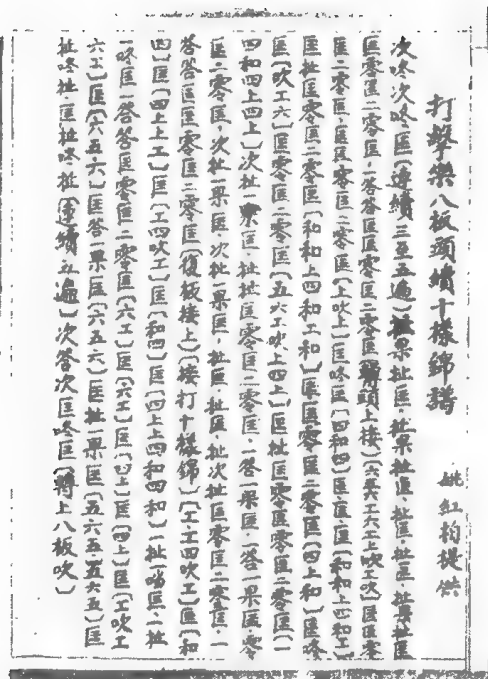 打擊樂八板頭續十樣錦譜
姚紅柏提供
次咚次咚匡(連續三至五遍)扯果扯匡·扯果扯匡·扯匡扯匡·扯果扯匡
匡零匡二零匡·一答答匡匡零匡二零匡(轉頭上接)(六吹工六工上吹工次)匡匡零
匡二零匡·匡匡零匡二零匡(上吹上)匡咚匡(四和四)匡·匡·匡(和和上四和工
匡扯匡零匡二零匡(和和上四和工和)匡匡零匡二零匡(四上和)匡咚
匡(吹工六)匡零匡二零匡(五六工吹工四上)匡扯匡零匡零匡二零匡(一
四和四上四上)次扯一果匡·扯扯匡零匡二零匡·一答一果匡·答一果匡·零
匡·零匡·次扯一果匡次扯一果匡·扯匡·扯匡·扯次扯匡零匡二零匡·一
答答匡匡零匡二零匡(復板接上)(接打十樣錦)(工·工四吹工)匡(和
四)匡(四上上工)匡(工四吹工)匡(和四)匡(四上上四和四和)一扯一咚匡·一扯
一咚匡一答答匡零匡二零匡(六工)匡(六工)匡(四上)匡(四上)匡(工吹工
六工)匡(六五·六)匡答一果匡(六五六)匡扯一果匡(五六五·五六五)匡
扯咚扯·匡扯咚扯(連續五遍)次答次匡咚匡(轉上八板吹)